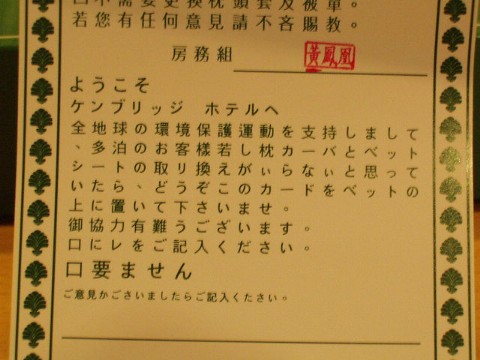 不需要更換枕頭套及被單。
若您有任何意見請不吝賜教。
房務組
黃鳳凰
ようこそ
ケンブリッジ ホテルヘ
全地球の環境保護運動を支持しまして
、多泊のお客様若し枕カーバとベット
シートの取り換えがぃらなぃと思って
いたら、どうぞこのカードをベットの
上に置いて下さいませ。
御協力有難うございます。
口にレをご記入ください。
口要ません
ご意見かごさいましたらご記入くたさい。